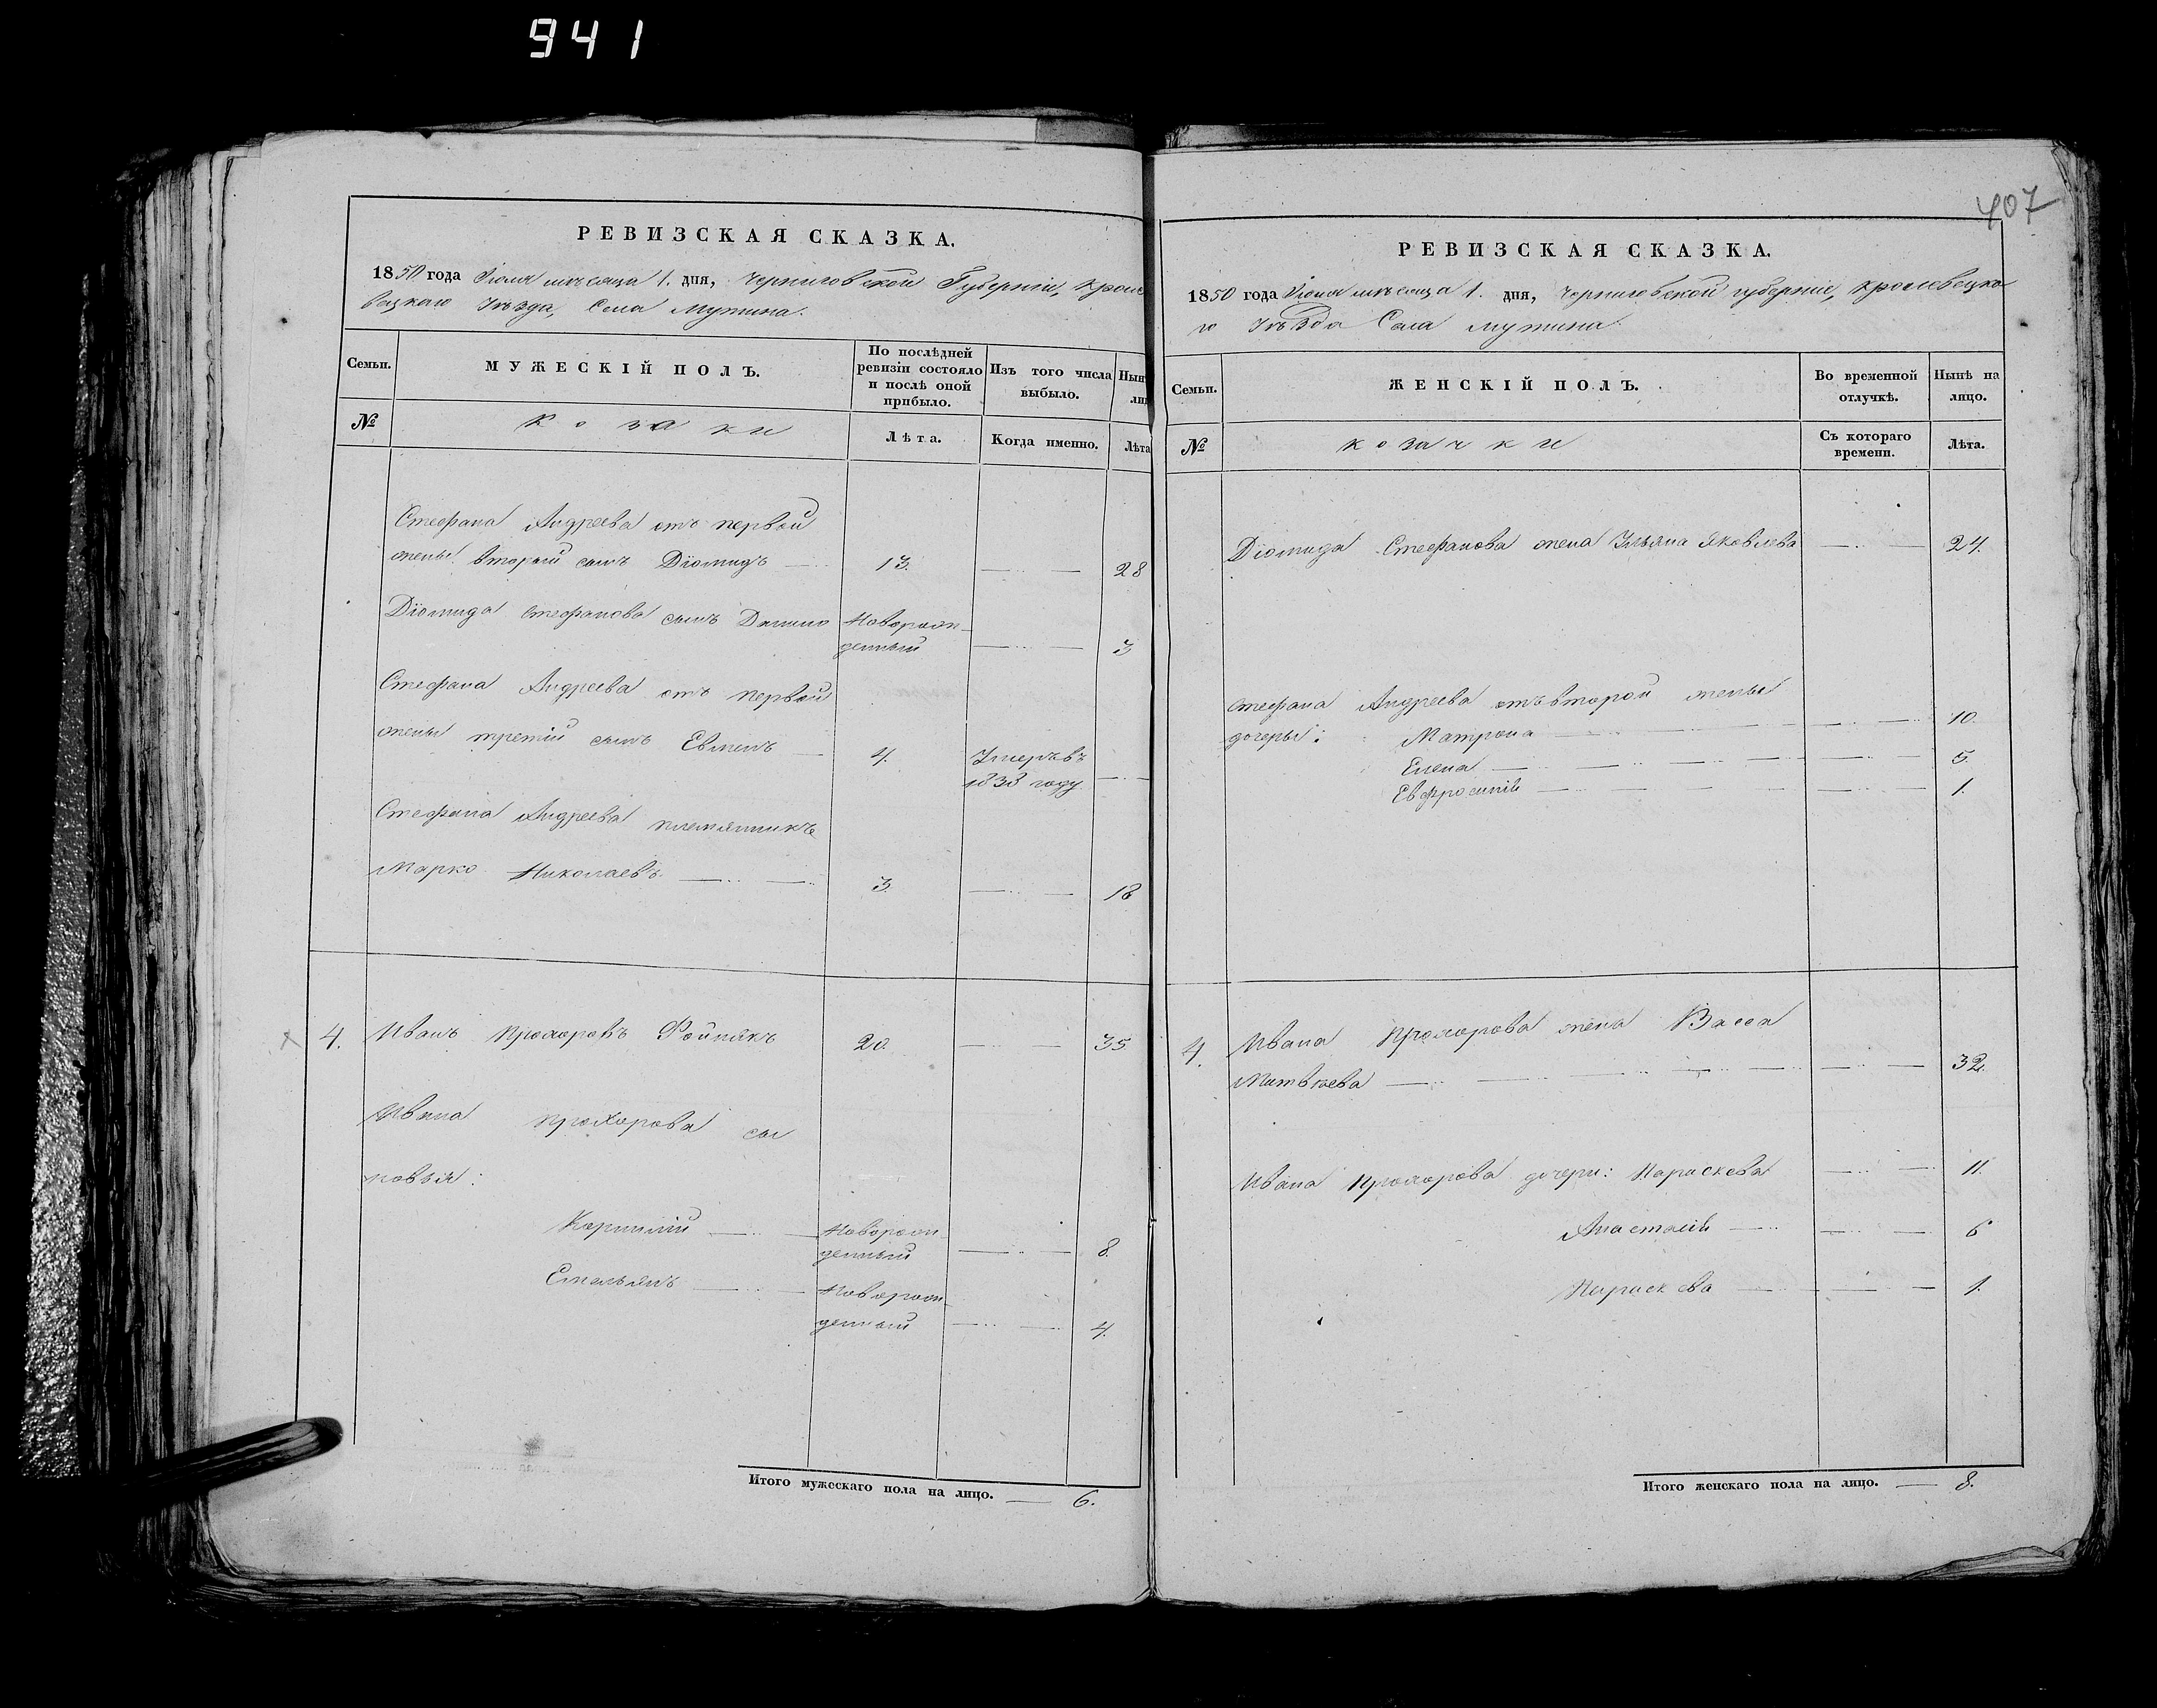 941
РЕВИЗСКАЯ СКАЗКА.
1850 года Іюля мѣсяца 1. дня, Черниговской Губерніи, Кроле
вецкаго Уѣзда, Села Мутина.
Семьи.
МУЖЕСКІЙ ПОЛЪ.
По послѣдней ревизіи состояло и послѣ оной прибыло.
Изъ того числа выбыло.
Нын
ли
№
Козаки
Лѣта.
Когда именно.
Лѣта
Стефана Андреева отъ первой
жены второй сынъ Діомидъ 13. 28
Діомида Стефанова сынъ Данило Новорож-
денный 3
Стефана Андреева отъ первой
жены третій сынъ Евменъ 4. Умеръ въ
1838 году
Стефана Андреева племянникъ
Марко Николаевъ 3. 18
4. Иванъ Прохоровъ 20. 35
Ивана Прохорова сы
новья:
Корнилій Новорож
денный 8.
Емельянъ Новорож
денный 4.
Итого мужескаго пола на лицо. 6.
407
РЕВИЗСКАЯ СКАЗКА.
1850 года Іюля мѣсяца 1. дня, Черниговской губерніи, Кролевецка
го Уѣзда Села Мутина.
Семьи.
ЖЕНСКІЙ ПОЛЪ.
Во временной отлучкѣ.
Нынѣ на лицо.
№
Козачки
Съ котораго времени.
Лѣта.
Діомида Стефанова жена Ульяна Яковлева 24.
Стефана Андреева отъ второй жены
дочеры: Матрона 10.
Елена 5.
Евфросинія 1.
4. Ивана Прохорова жена Васса
Матвѣева 32.
Ивана Прохорова дочери: Параскева 11.
Анастасія 6
Параскева 1.
Итого женскаго пола на лицо. 8.